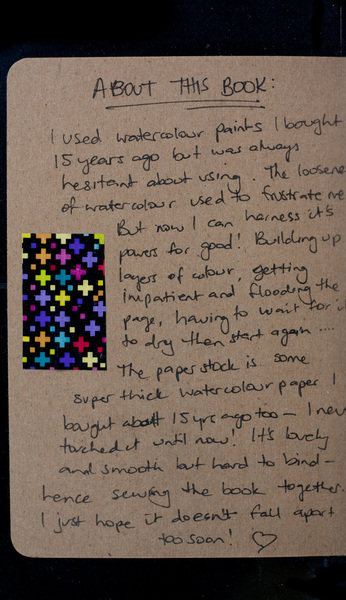 ABOUT THIS BOOK:
I used watercolour paints I bought
15 years ago but was always
hesitant about using. The loosene
of watercolour used to frustrate me
But now I can harness it's
powers for good! Building up
layers of colour, getting
impatient and flooding the
page, having to wait for i
to dry then start again ....
The paper stock is some
super thick watercolour paper I
bought about 15 yrs ago too – I nev
touched it until now! It's lovely
and smooth but hard to bind –
hence sewing the book together.
I just hope it doesn't fall apart
too soon! ♡